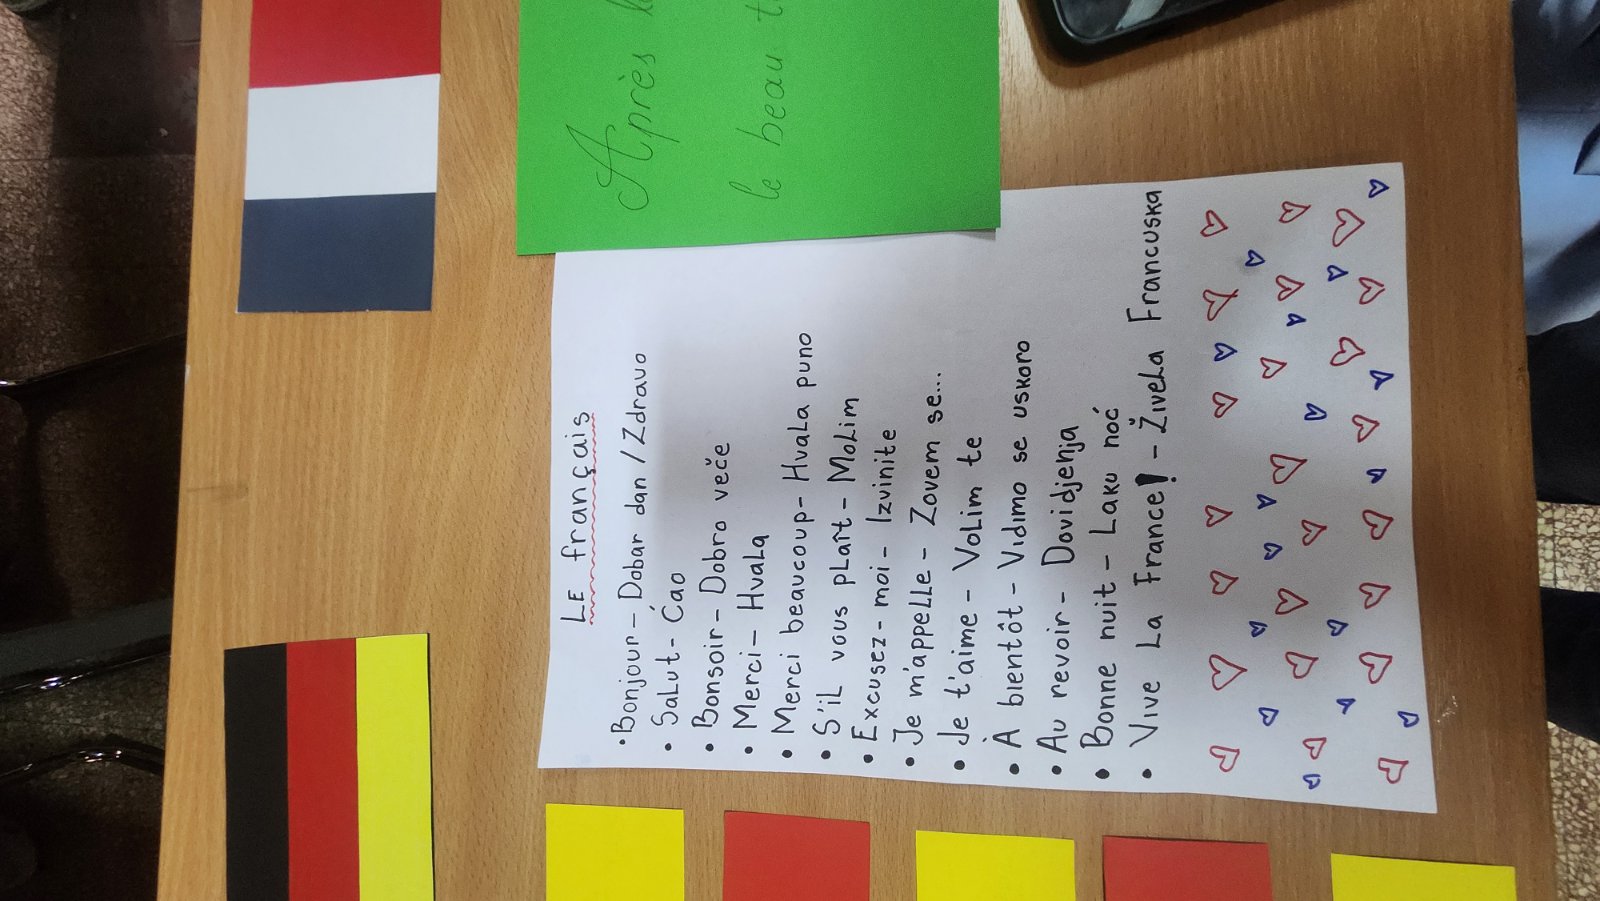 Après
le beau
LE français
• Bonjour - Dobar dan / Zdravo
• Salut - Ćao
• Bonsoir - Dobro veče
• Merci - Hvala
• Merci beaucoup - Hvala puno
• S'il vous plart - Molim
• Excusez - moi - Izvinite
• Je m'appelle - Zovem se...
• Je t'aime - Volim te
• À bientôt - Vidimo se uskoro
• Au revoir - Dovidjenja
• Bonne nuit - Laku noć
• Vive La France! - Živela Francuska